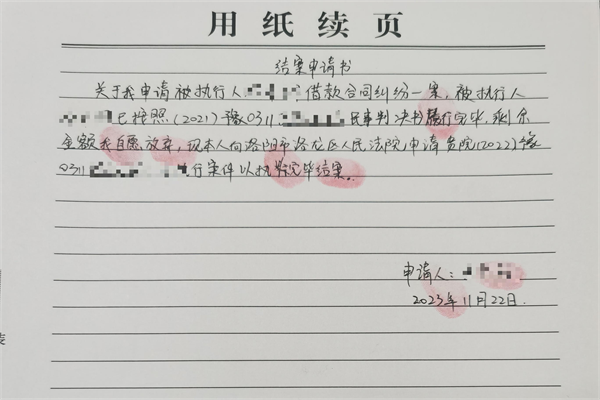 用纸续页
结案申请书
关于我申请被执行人 借款合同纠纷一案,被执行人
已按照(2021)豫0311 民事判决书履行完毕,剩余
金额我自愿放弃,现本人向洛阳市洛龙区人民法院,申请贵院(2022)豫
0311 行案件以执行完毕结案.
申请人:
2023年11月22日.